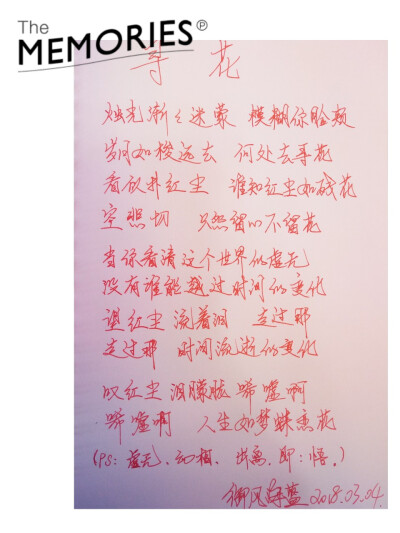 The
MEMORIES℗
寻 花
烛光渐々迷蒙 模糊你脸颊
岁月如梭远去 何处去寻花
看破井红尘 谁知红尘如残花
空悲切 只然留心不留花
当你看清这个世界的虚无
没有谁能越过时间的变化
谌红尘 流着泪 走过那
走过那 时间流逝的变化
叹红尘 泪朦胧 唏嘘啊
唏嘘啊 人生如梦蝶恋花
(PS: 虚无、幻相、出离、即:悟。)
御风 蓝 2018.03.04.